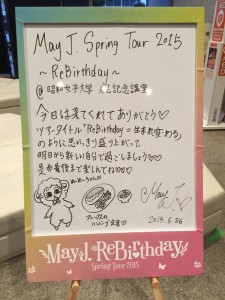 May J. Spring Tour 2015
～ReBirthday～
@ 昭和女子大学 人見記念講堂
今日は来てくれてありがとう♡♡
ツアータイトル「ReBirthday=生まれ変わる」
のように思いっきり盛り上がって
明日から新しい自分で過ごしましょう♡♡
是非最後まで楽しんでね♡♡♡
ハンバーグ
May J.
2015. 6. 26
May J. ReBirthday
Spring Tour 2015